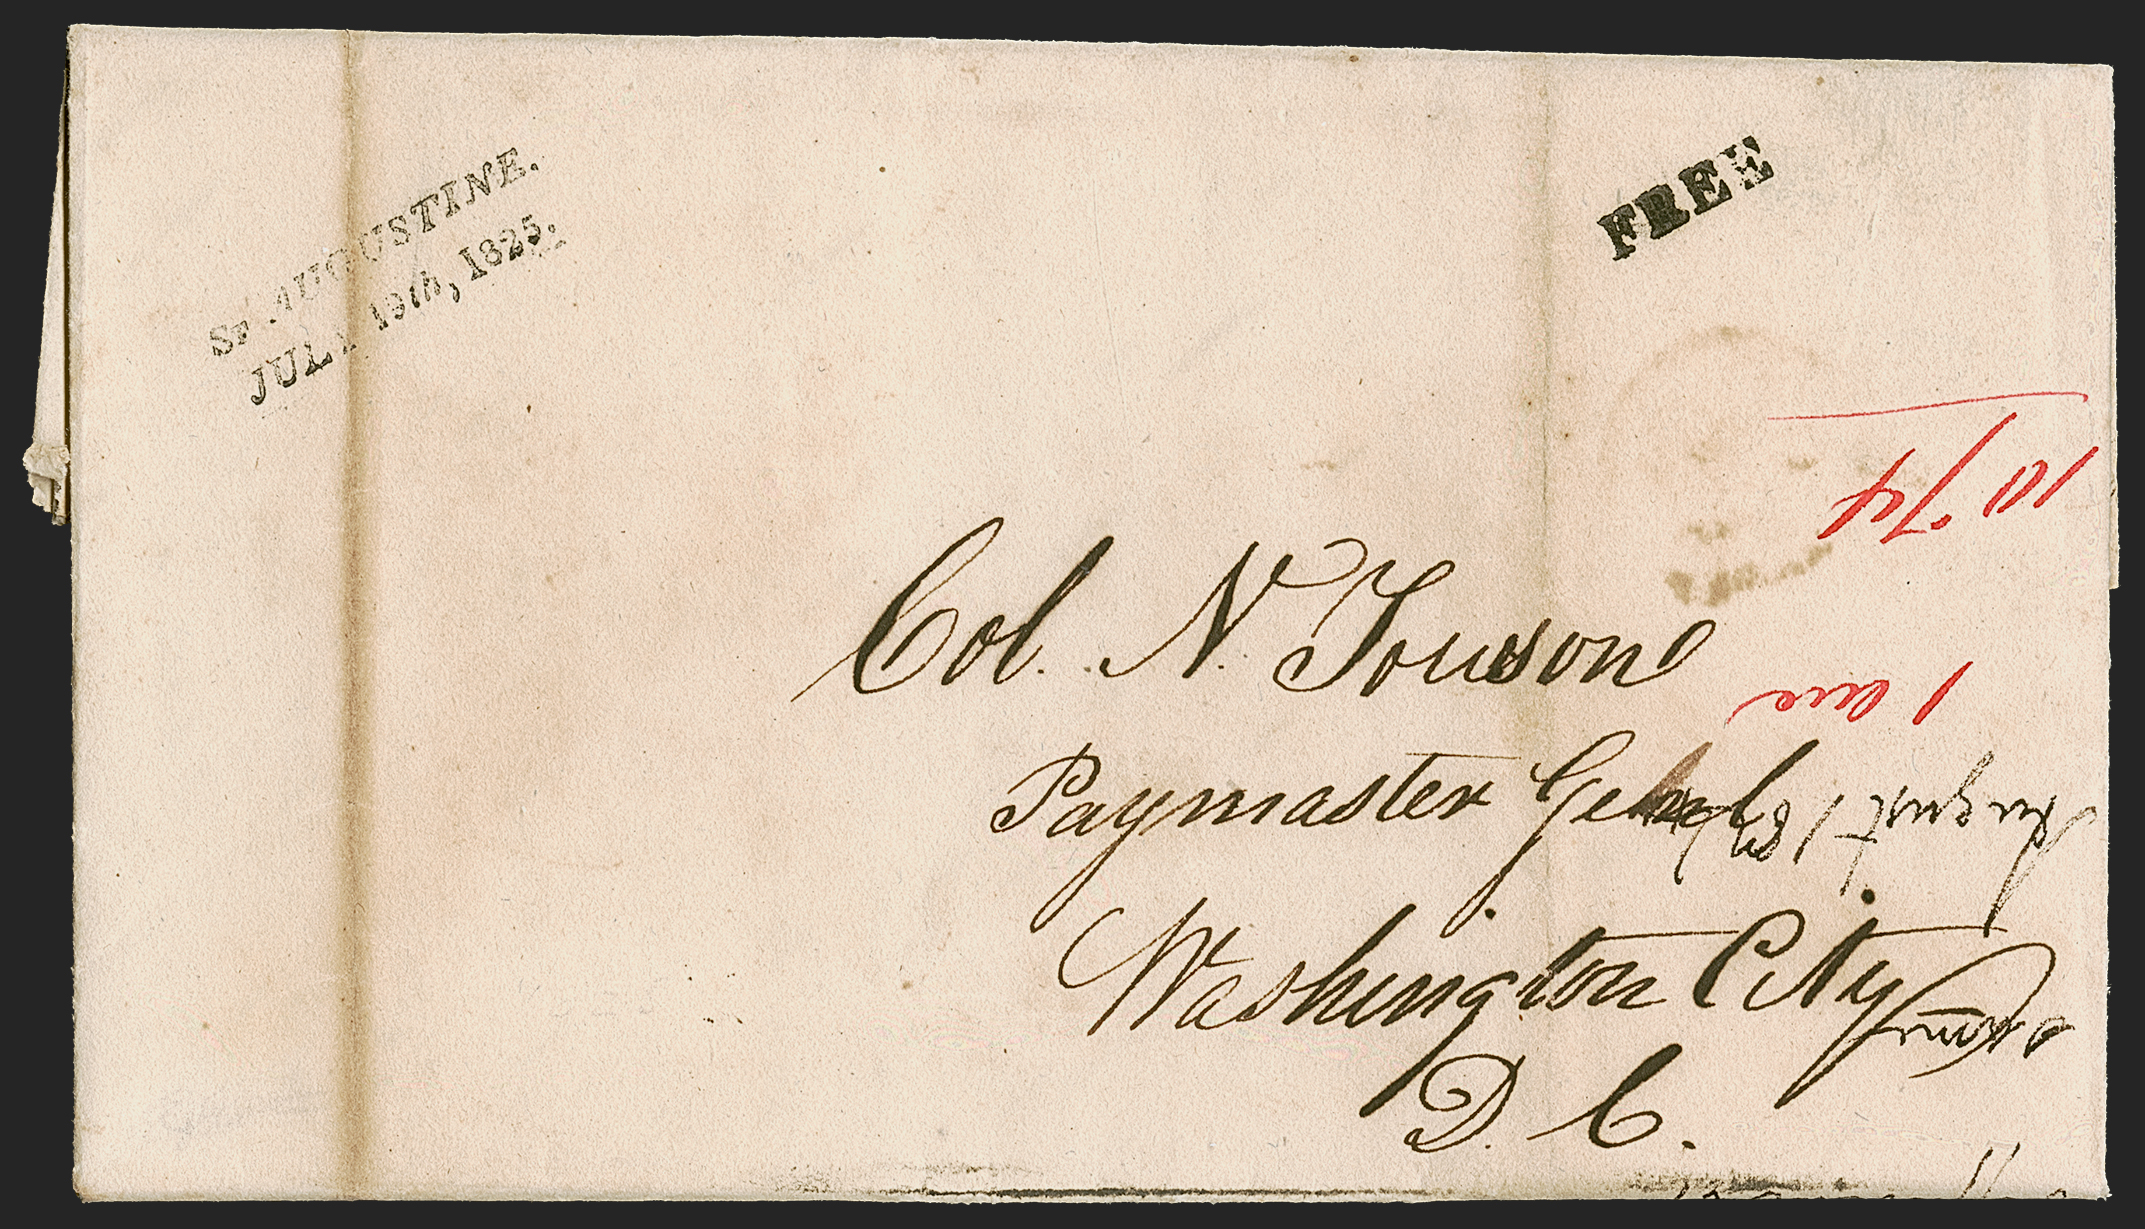 St. AUGUSTINE.
JULY 19th, 1825.
FREE
Col. N. Towson
Paymaster Genl.
Washington City
D. C.
10.74
1 ace
August 18